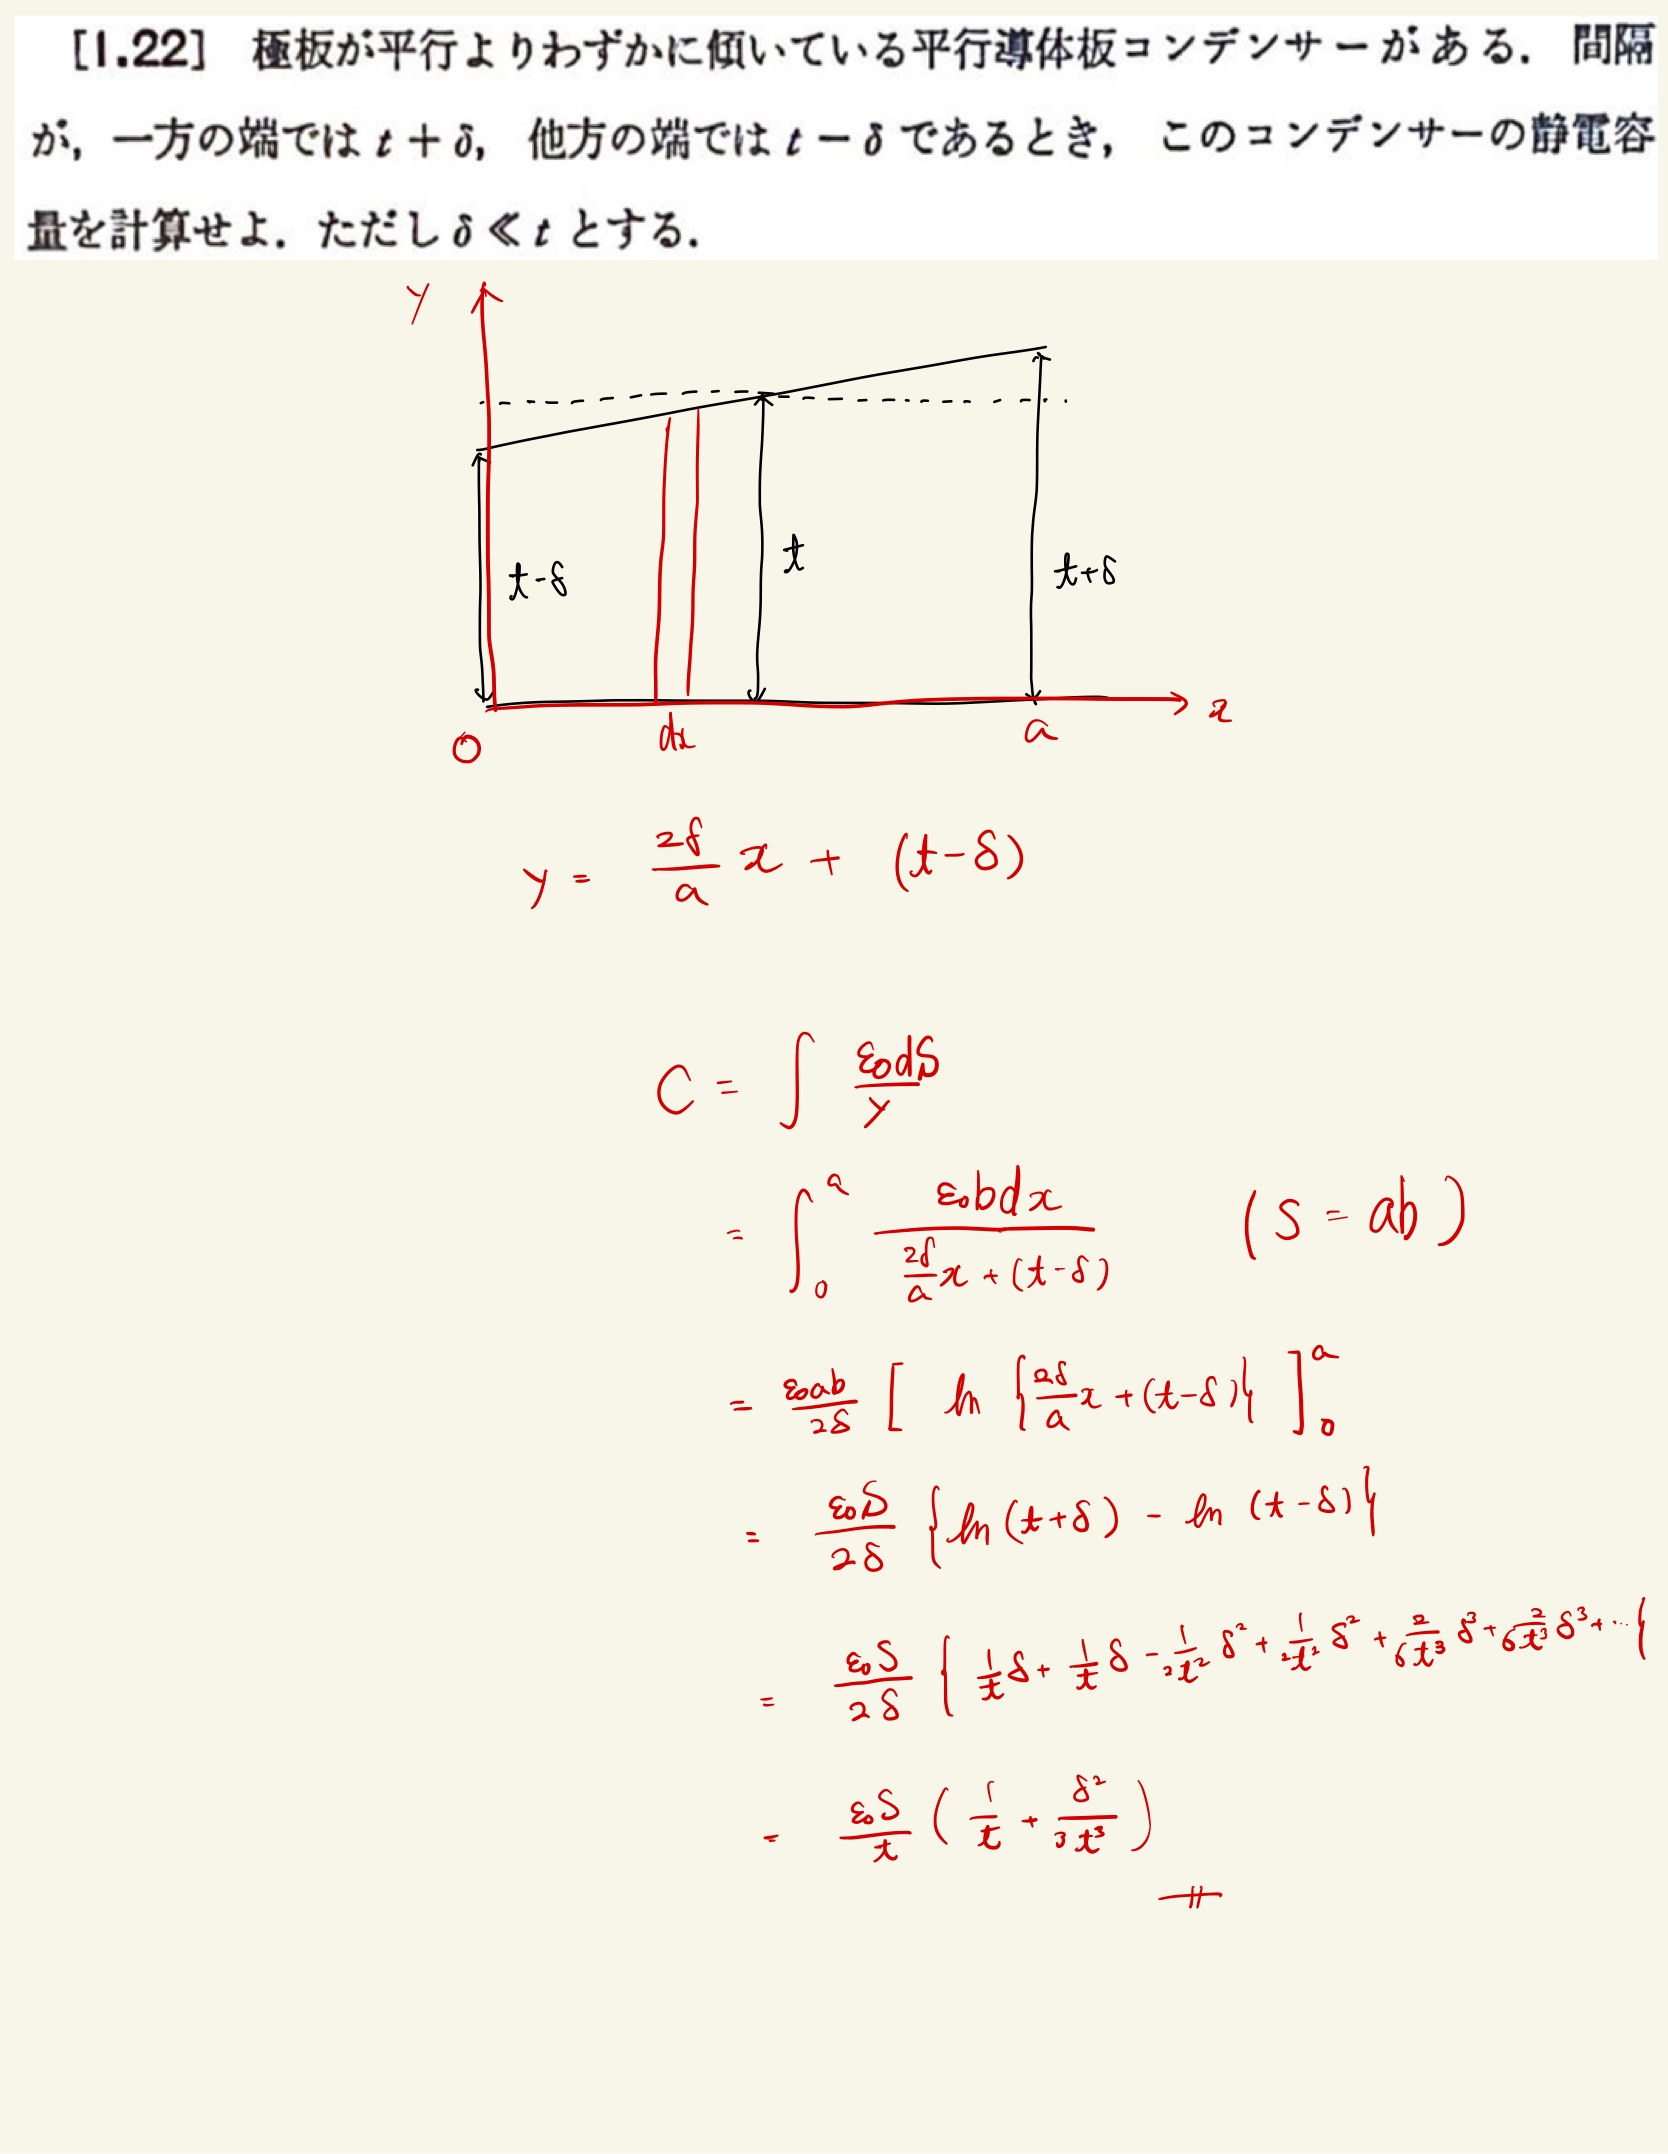 [1.22] 極板が平行よりわずかに傾いている平行導体板コンデンサーがある. 間隔
が, 一方の端では t + δ, 他方の端では t − δ であるとき, このコンデンサーの静電容
量を計算せよ. ただし δ ≪ t とする.
y
t-δ
t
t+δ
O
dx
a
x
y = 2δ/a x + (t-δ)
C = ∫ ε₀dS/y
= ∫₀ᵃ ε₀bdx / (2δ/a x + (t-δ)) (S = ab)
= ε₀ab/2δ [ ln {2δ/a x + (t-δ)} ]₀ᵃ
= ε₀S/2δ {ln (t+δ) - ln (t-δ)}
= ε₀S/2δ { 1/t δ + 1/t δ - 1/2t² δ² + 1/2t² δ² + 2/6t³ δ³ + 2/6t³ δ³ + … }
= ε₀S/t ( 1/t + δ²/3t³ )